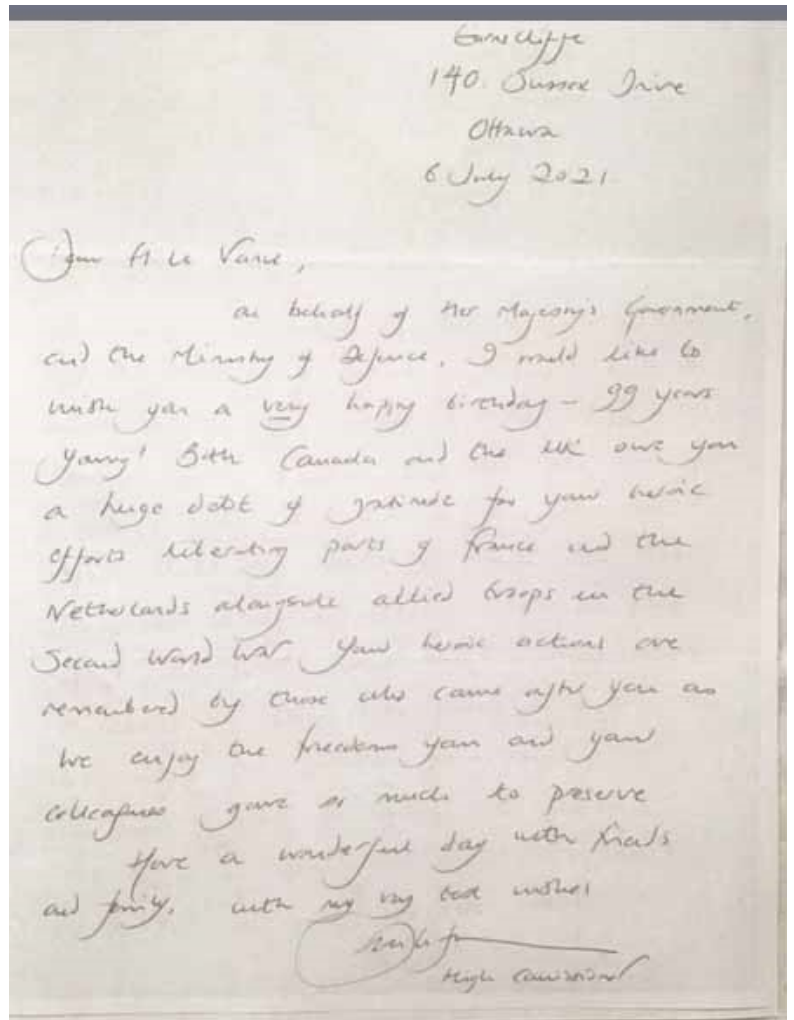 Earnscliffe
140. Sussex Drive
Ottawa
6 July 2021.
Dear
on behalf of Her Majesty's Government,
and the Ministry of Defence, I would like to
wish you a very happy birthday – 99 years
young! Both Canada and the UK owe you
a huge debt of gratitude for your heroic
efforts liberating parts of France and the
Netherlands alongside allied troops in the
Second World War. Your heroic actions are
remembered by those who came after you as
we enjoy the freedoms you and your
colleagues gave so much to preserve
Have a wonderful day with friends
and family. With my very best wishes
High Commissioner